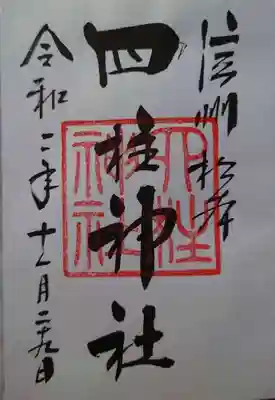 信州松本
四柱神社
令和二年十一月二十九日
四柱神社